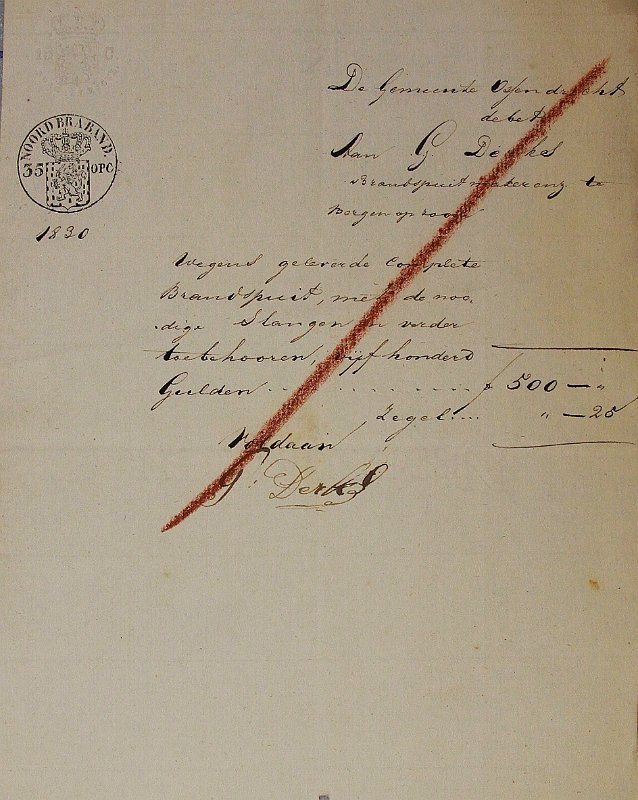 De Gemeente Ossendrecht
debet
Aan G Derks
Brandspuitmaker enz te
Bergen op zoom
NOORD BRABAND.
35 OPC
1830
Wegens geleverde Complete
Brandspuit, met de noo-
dige Slangen en verder
toebehooren, vijf honderd
Gulden . . . . . . . . . . f 500 — "
Zegel .... " — 25
Voldaan
G. Derks